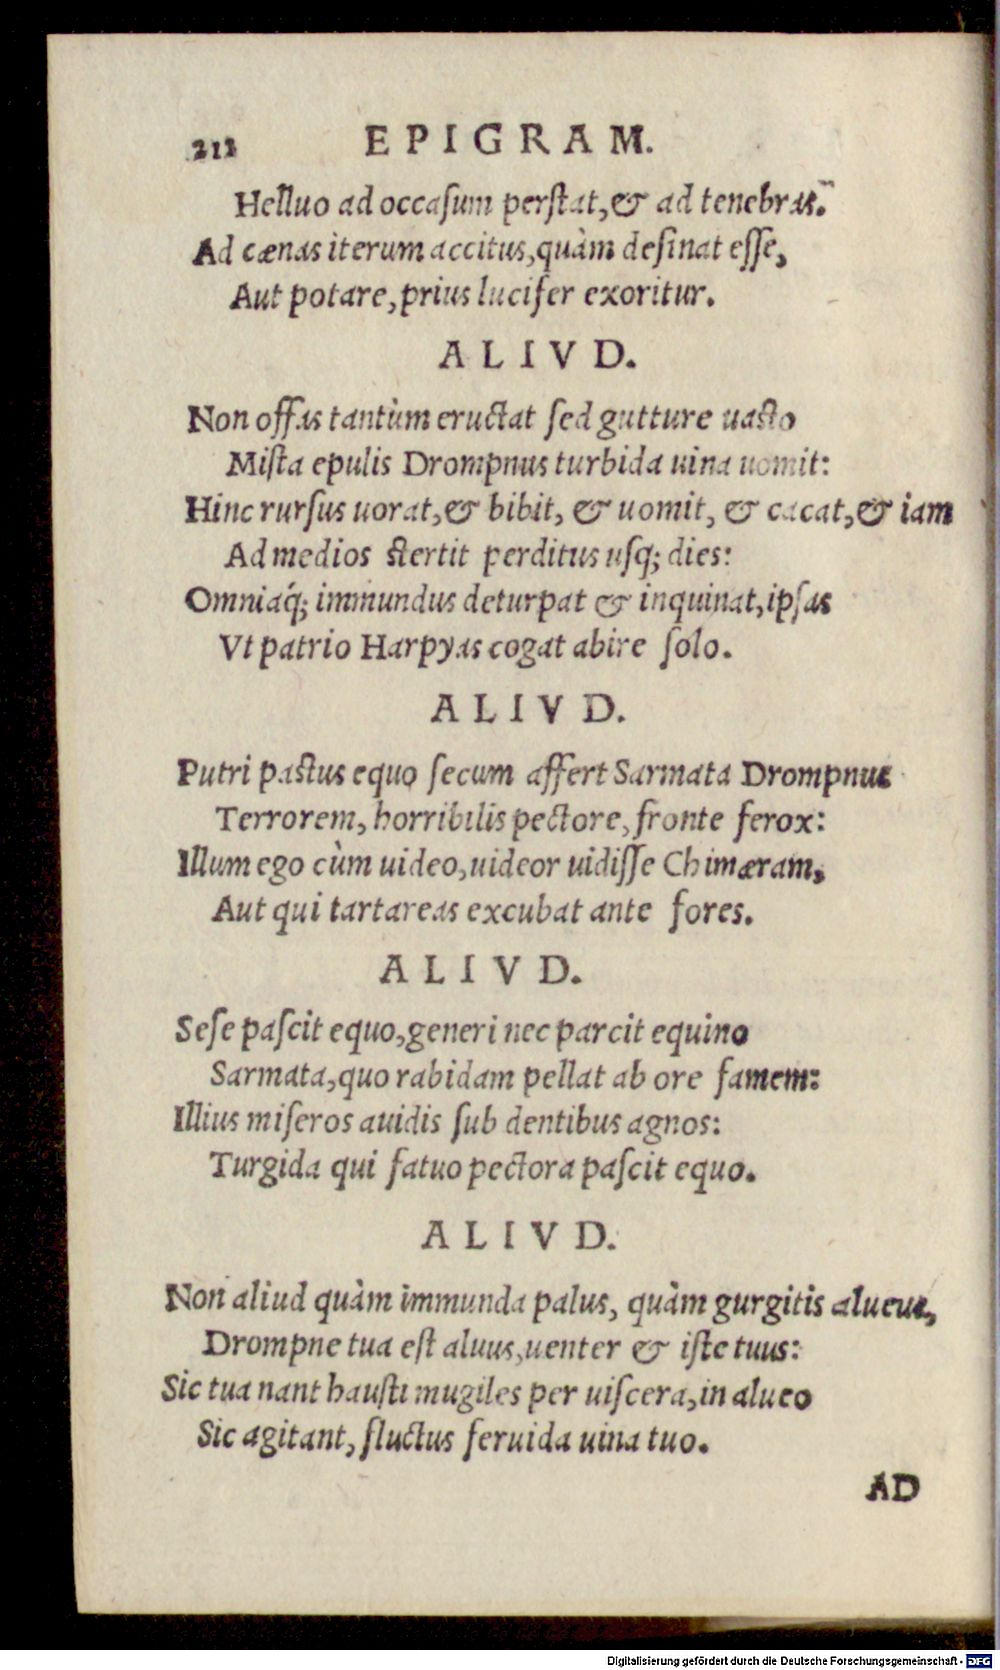 212 EPIGRAM.
Helluo ad occaſum perſtat, & ad tenebras.
Ad cænas iterum accitus, quàm deſinat eſſe,
Aut potare, prius lucifer exoritur.
ALIVD.
Non offas tantùm eructat ſed gutture uaſto
Miſta epulis Drompnus turbida uina uomit:
Hinc rurſus uorat, & bibit, & uomit, & cacat, & iam
Ad medios ſtertit perditus uſq; dies:
Omniaq́; immundus deturpat & inquinat, ipſas
Vt patrio Harpyas cogat abire ſolo.
ALIVD.
Putri paſtus equo ſecum affert Sarmata Drompnus
Terrorem, horribilis pectore, fronte ferox:
Illum ego cùm uideo, uideor uidiſſe Chimæram,
Aut qui tartareas excubat ante fores.
ALIVD.
Seſe paſcit equo, generi nec parcit equino
Sarmata, quo rabidam pellat ab ore famem:
Illius miſeros auidis ſub dentibus agnos:
Turgida qui fatuo pectora paſcit equo.
ALIVD.
Non aliud quàm immunda palus, quàm gurgitis alueus,
Drompne tua eſt aluus, uenter & iſte tuus:
Sic tua nant hauſti mugiles per uiſcera, in alueo
Sic agitant, fluctus feruida uina tuo.
AD
Digitalisierung gefördert durch die Deutsche Forschungsgemeinschaft - DFG